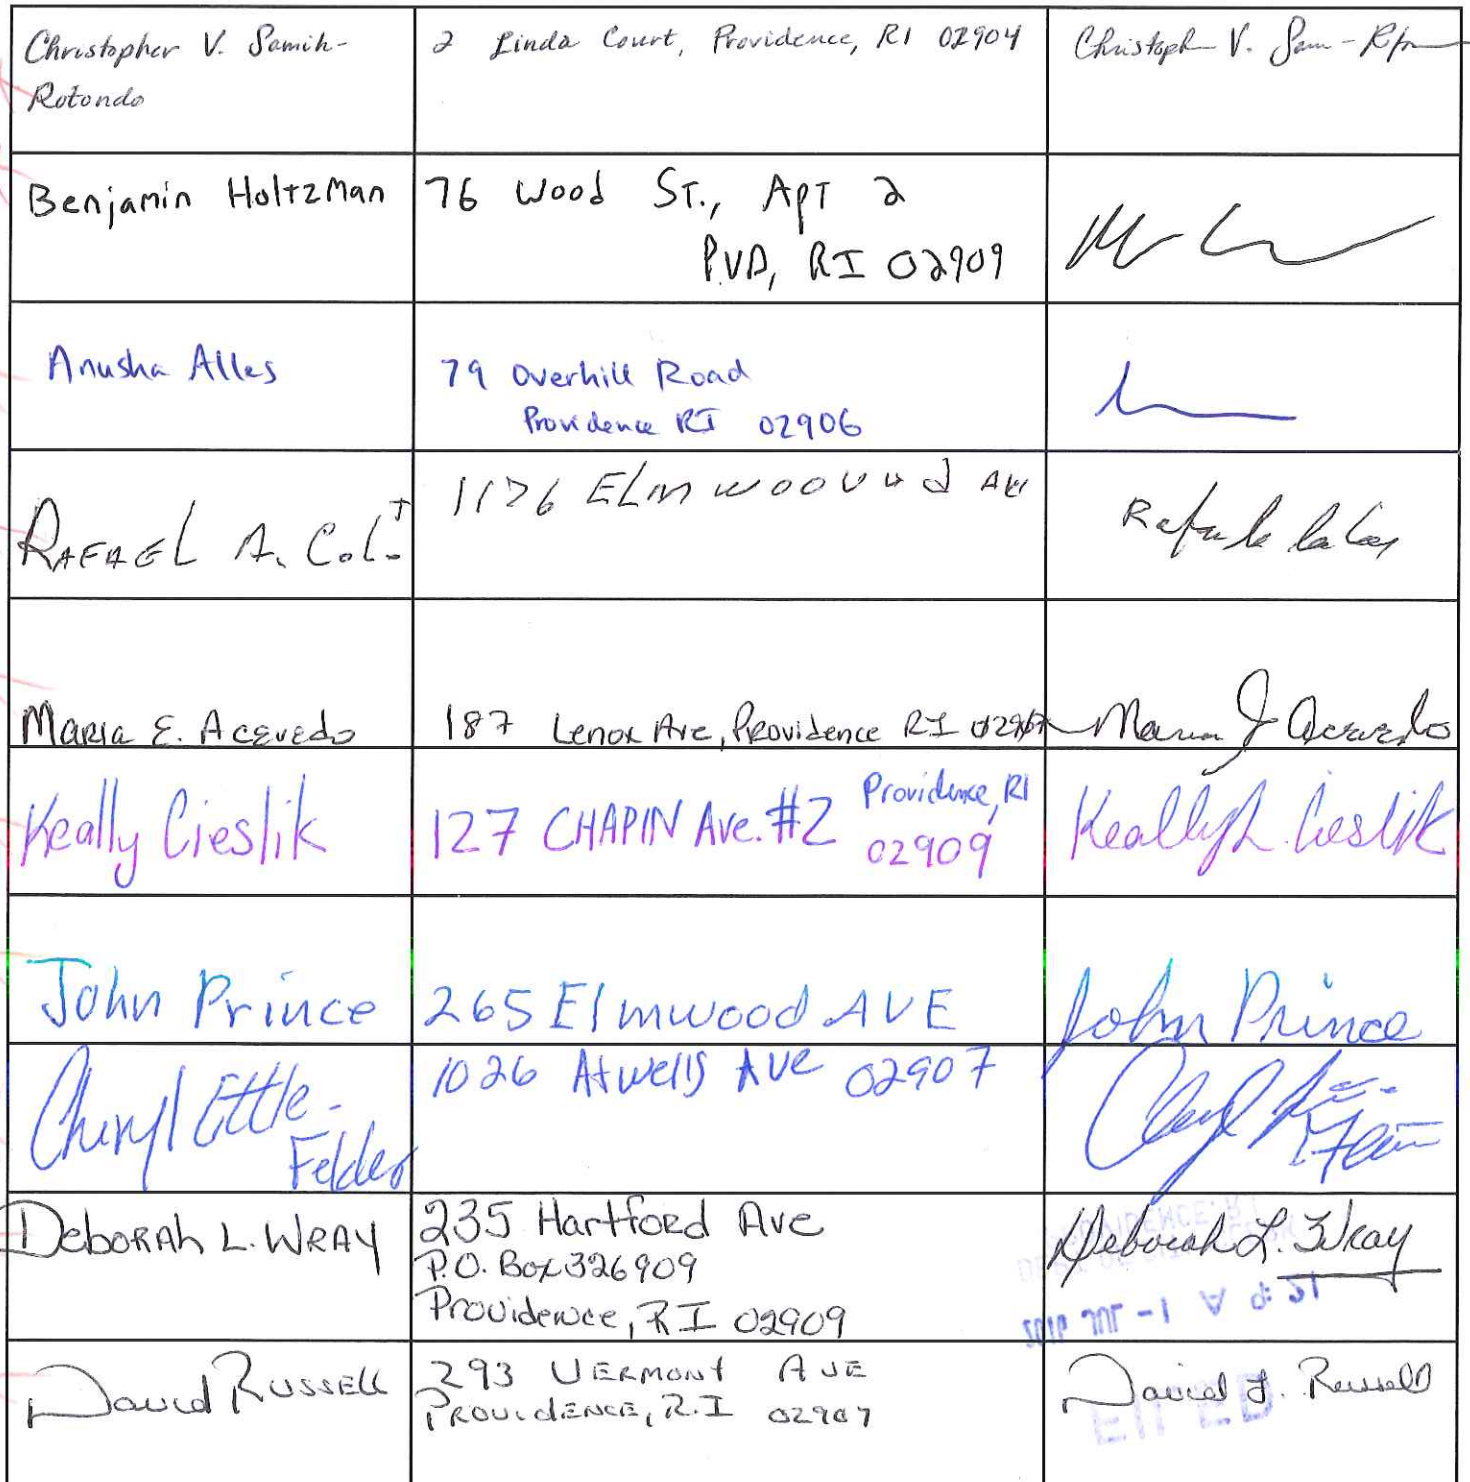 Christopher V. Samih-
Rotondo
2 Linda Court, Providence, RI 02904
Benjamin Holtzman
76 Wood ST., APT 2
PVD, RI 02909
Anusha Alles
79 Overhill Road
Providence RI 02906
RAFAEL A. Col
1176 ELmwoouud Ave
Maria E. Acevedo
187 Lenox Ave, Providence RI 02907
Maria J Acevedo
Keally Cieslik
127 CHAPIN Ave. #2 Providence, RI
02909
Keally L. Cieslik
John Prince
265 Elmwood AVE
John Prince
Cheryl Ettle-
Felder
1026 Atwells AVE 02907
DEBORAh L. WRAY
235 Hartford Ave
P.O. Box 326909
Providence, RI 02909
Deborah L. Wray
David Russell
293 VERMONT AVE
PROVIDENCE, R.I 02907
David J. Russell
FILED